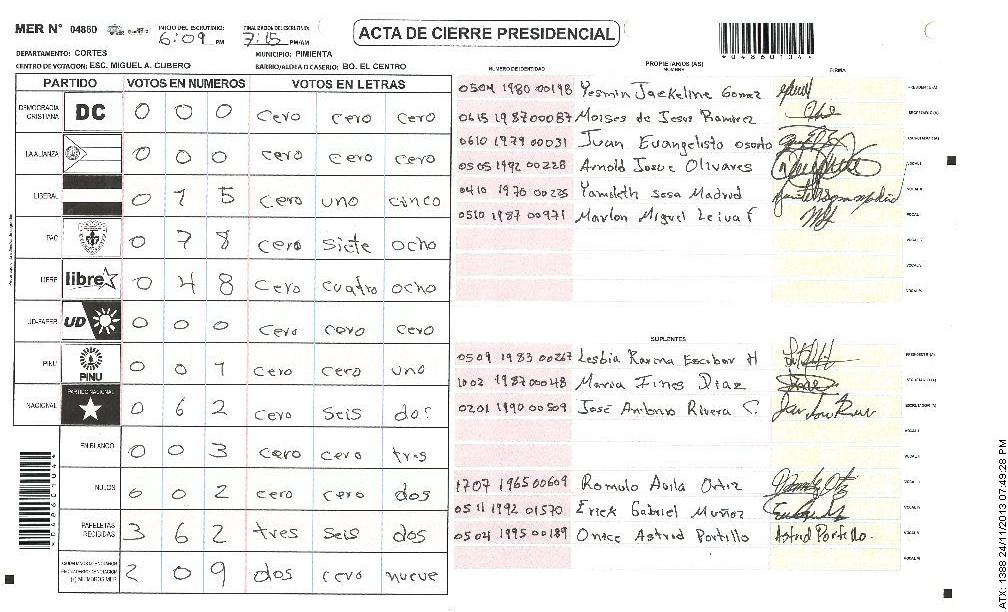 MER N° 04860 INICIO DEL ESCRUTINIO: 6:09 PM FINALIZACION DEL ESCRUTINIO: 7:15 PM/AM
ACTA DE CIERRE PRESIDENCIAL
DEPARTAMENTO: CORTES MUNICIPIO: PIMIENTA
CENTRO DE VOTACION: ESC. MIGUEL A. CUBERO BARRIO/ALDEA O CASERIO: BO. EL CENTRO
*04860104*
PARTIDO VOTOS EN NUMEROS VOTOS EN LETRAS
DEMOCRACIA CRISTIANA DC 0 0 0 cero cero cero
LA ALIANZA 0 0 0 cero cero cero
LIBERAL 0 1 5 cero uno cinco
PAC 0 7 8 cero siete ocho
LIBRE libre 0 4 8 cero cuatro ocho
UD-FAPER UD 0 0 0 cero cero cero
PINU PINU 0 0 1 cero cero uno
NACIONAL PARTIDO NACIONAL 0 6 2 cero seis dos
EN BLANCO 0 0 3 cero cero tres
NULOS 0 0 2 cero cero dos
PAPELETAS RECIBIDAS 3 6 2 tres seis dos
2 0 9 dos cero nueve
NUMERO DE IDENTIDAD PROPIETARIOS (AS) NOMBRE FIRMA
0504 1980 00198 Yesmin Jackeline Gomez PRESIDENTE (A)
0615 1987 00087 Moises de Jesus Ramirez SECRETARIO (A)
0610 1979 00031 Juan Evangelisto osorto ESCRUTADOR (A)
0505 1992 00228 Arnold Josue Olivares VOCAL I
0410 1970 00225 Yamileth sosa Madrid VOCAL II
0510 1987 00971 Marlon Miguel Leiva F
SUPLENTES
0509 1983 00267 Lesbia Karina Escobar H PRESIDENTE (A)
1002 1987 00048 Maria Fines Diaz SECRETARIO (A)
0201 1990 00509 José Antonio Rivera C. ESCRUTADOR (A)
1707 1965 00609 Romulo Avila Ortiz
0511 1992 01570 Erick Gabriel Muñoz
0504 1995 00189 Onice Astrid Portillo Astrid Portillo.
*04860104*
ATX: 1388 24/11/2013 07:49:28 PM